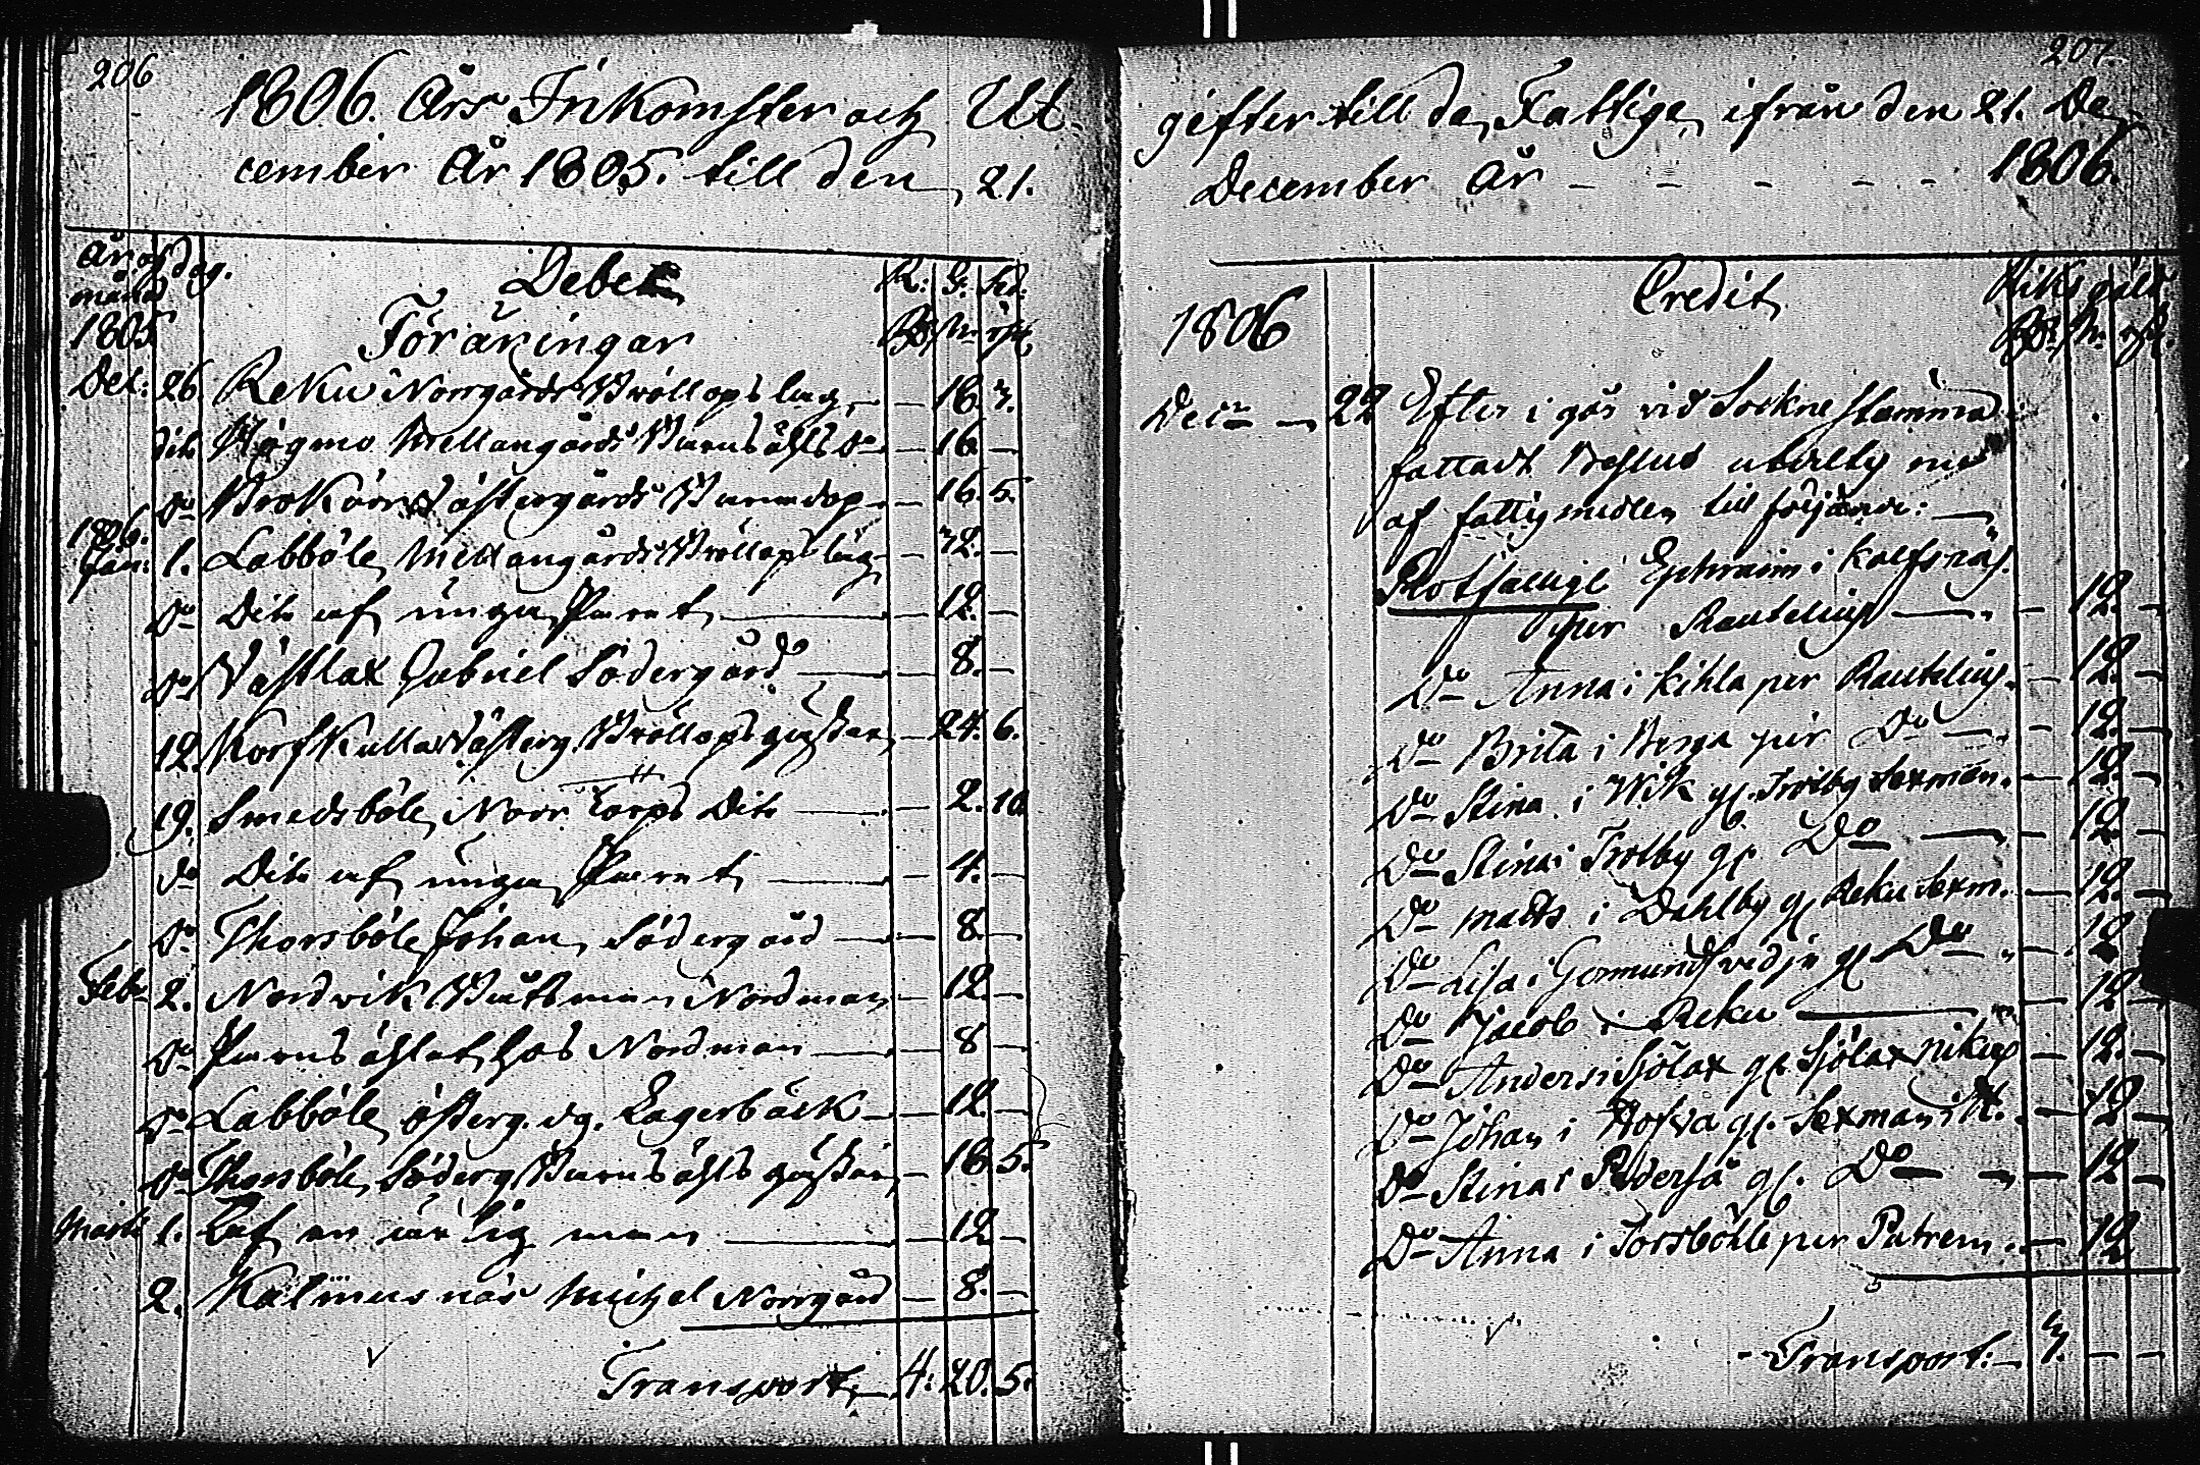 206
1806. Års Inkomster och Ut-
cember År 1805. till den 21.
År och dag.
månad
Debet
R: G: Sd.
1805
Föräringar
Dec: 26. Reku Norrgårds Bröllops lag, — 16. 7.
dito Högmo Mellangårds Barnsöhls Do — 16. —
Do Brokärr Västergårds Barndop — 16. 5.
1806.
Jan: 1. Labböle Mellangårds Bröllops lag — 72. —
Do Dito af unga Paret — 12. —
Do Västlax Gabriel Södergård — 8. —
12. Korskulla Västerg. Bröllops gästar — 24. 6.
19. Smedsböle Norr Torps Dito — 2. 10
Do Dito af unga Paret — 4. —
Do Thorsböle Johan Södergård — 8. —
Febr 2. Nordwik Båtsman Nordman — 12. —
Do Barnsöhlet hos Nordman — 8 —
Do Labböle österg. dg. Lagerbäck — 12. —
Do Thorsböle Söderg. Barnsöhls gästar — 16. 5.
Marti 1. Af en ärlig man — 12. —
2. Kalmusnäs Michel Norrgård — 8. —
Transport, — 4. 20. 5.
207.
gifter till de Fattige, ifrån den 21. De-
December År - - - - - 1806.
Credit
Riks gäld
1806
Decr — 22 Efter i går vid Sockne stämma
fattadt Beslut utdeltes nu
af fattigmedlen till följande: —
Rotfallige Ephraim i Kalfsnäs
per Rautelius — — 12. —
Do Anna i Kihla per Rautelius. — 12. —
Do Brita i Berga per Do — — 12. —
Do Stina i Wik gm. Trotby Sexman. — 12. —
Do Stina i Trotby gm. Do — — 12. —
Do Matts i Dahlby gm Reku Sexm. — 12. —
Do Lisa i Germundsvedja gm Do — 12 —
Do Jacob i Reku — — 12 —
Do Anders i Sjölax gm. Sjölax — 12. —
Do Johan i Hofda gm. Sexman i — 12 —
Do Stina i Pederså gm. Do — — 12 —
Do Anna i Torsböhle per Patrem — 12
Transport: — 3. — —